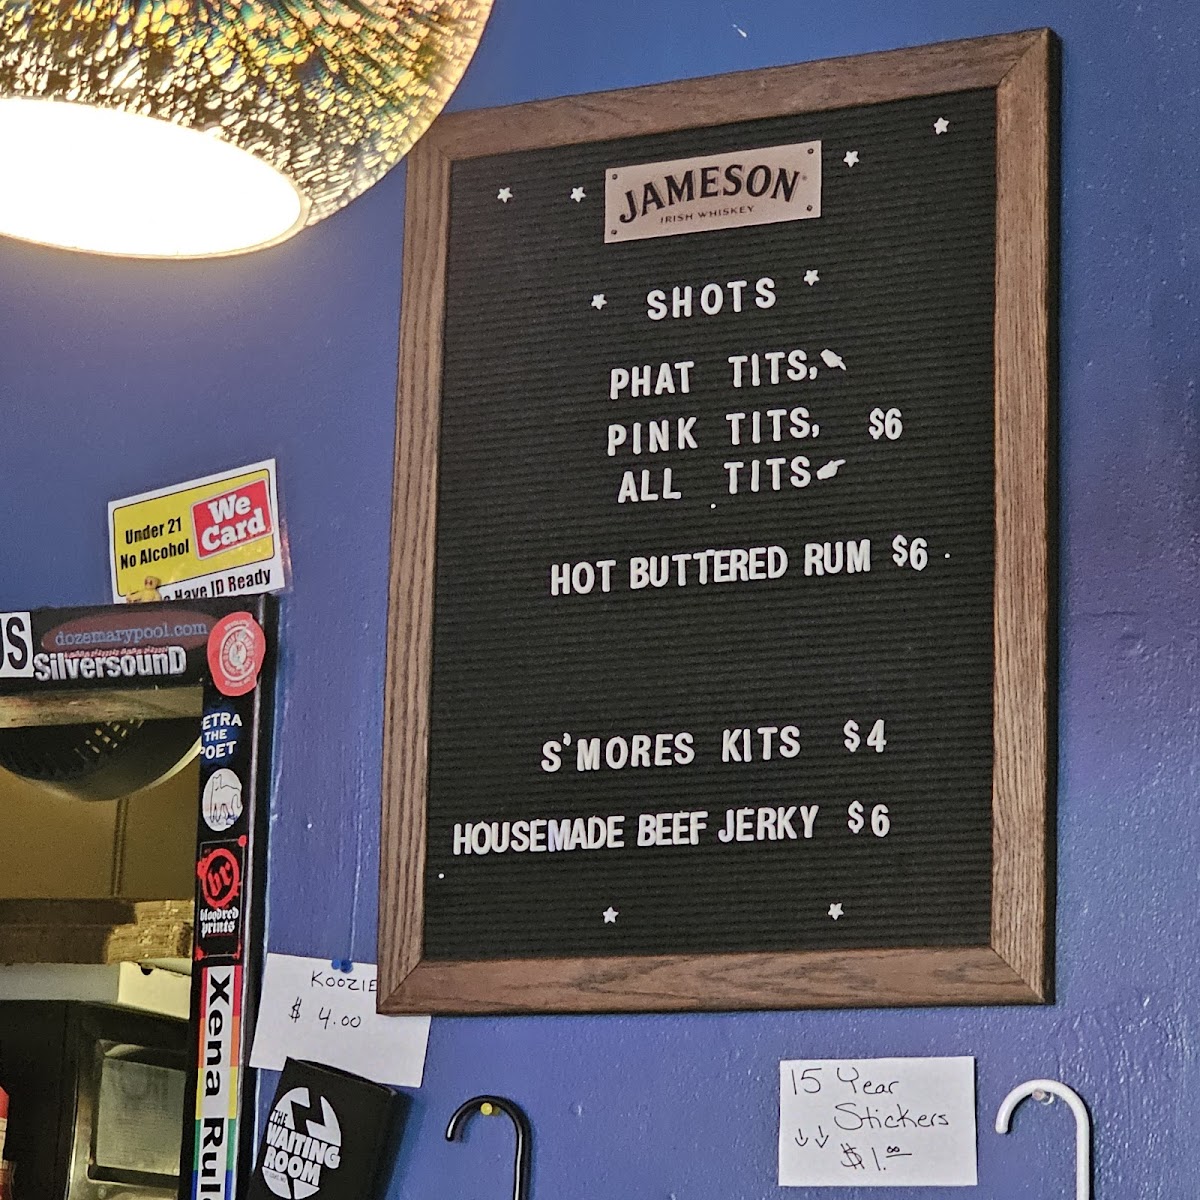 JAMESON
IRISH WHISKEY
SHOTS
PHAT TITS,
PINK TITS, $6
ALL TITS
HOT BUTTERED RUM $6
S'MORES KITS $4
HOUSEMADE BEEF JERKY $6
Under 21
No Alcohol
We
Card
Have ID Ready
US
dozemarypool.com
SilversounD
ETRA
THE
POET
br
bloodred
prints
Xena Rul
KOOZIE
$ 4.00
THE
WAITING
ROOM
15 Year
Stickers
$1.00